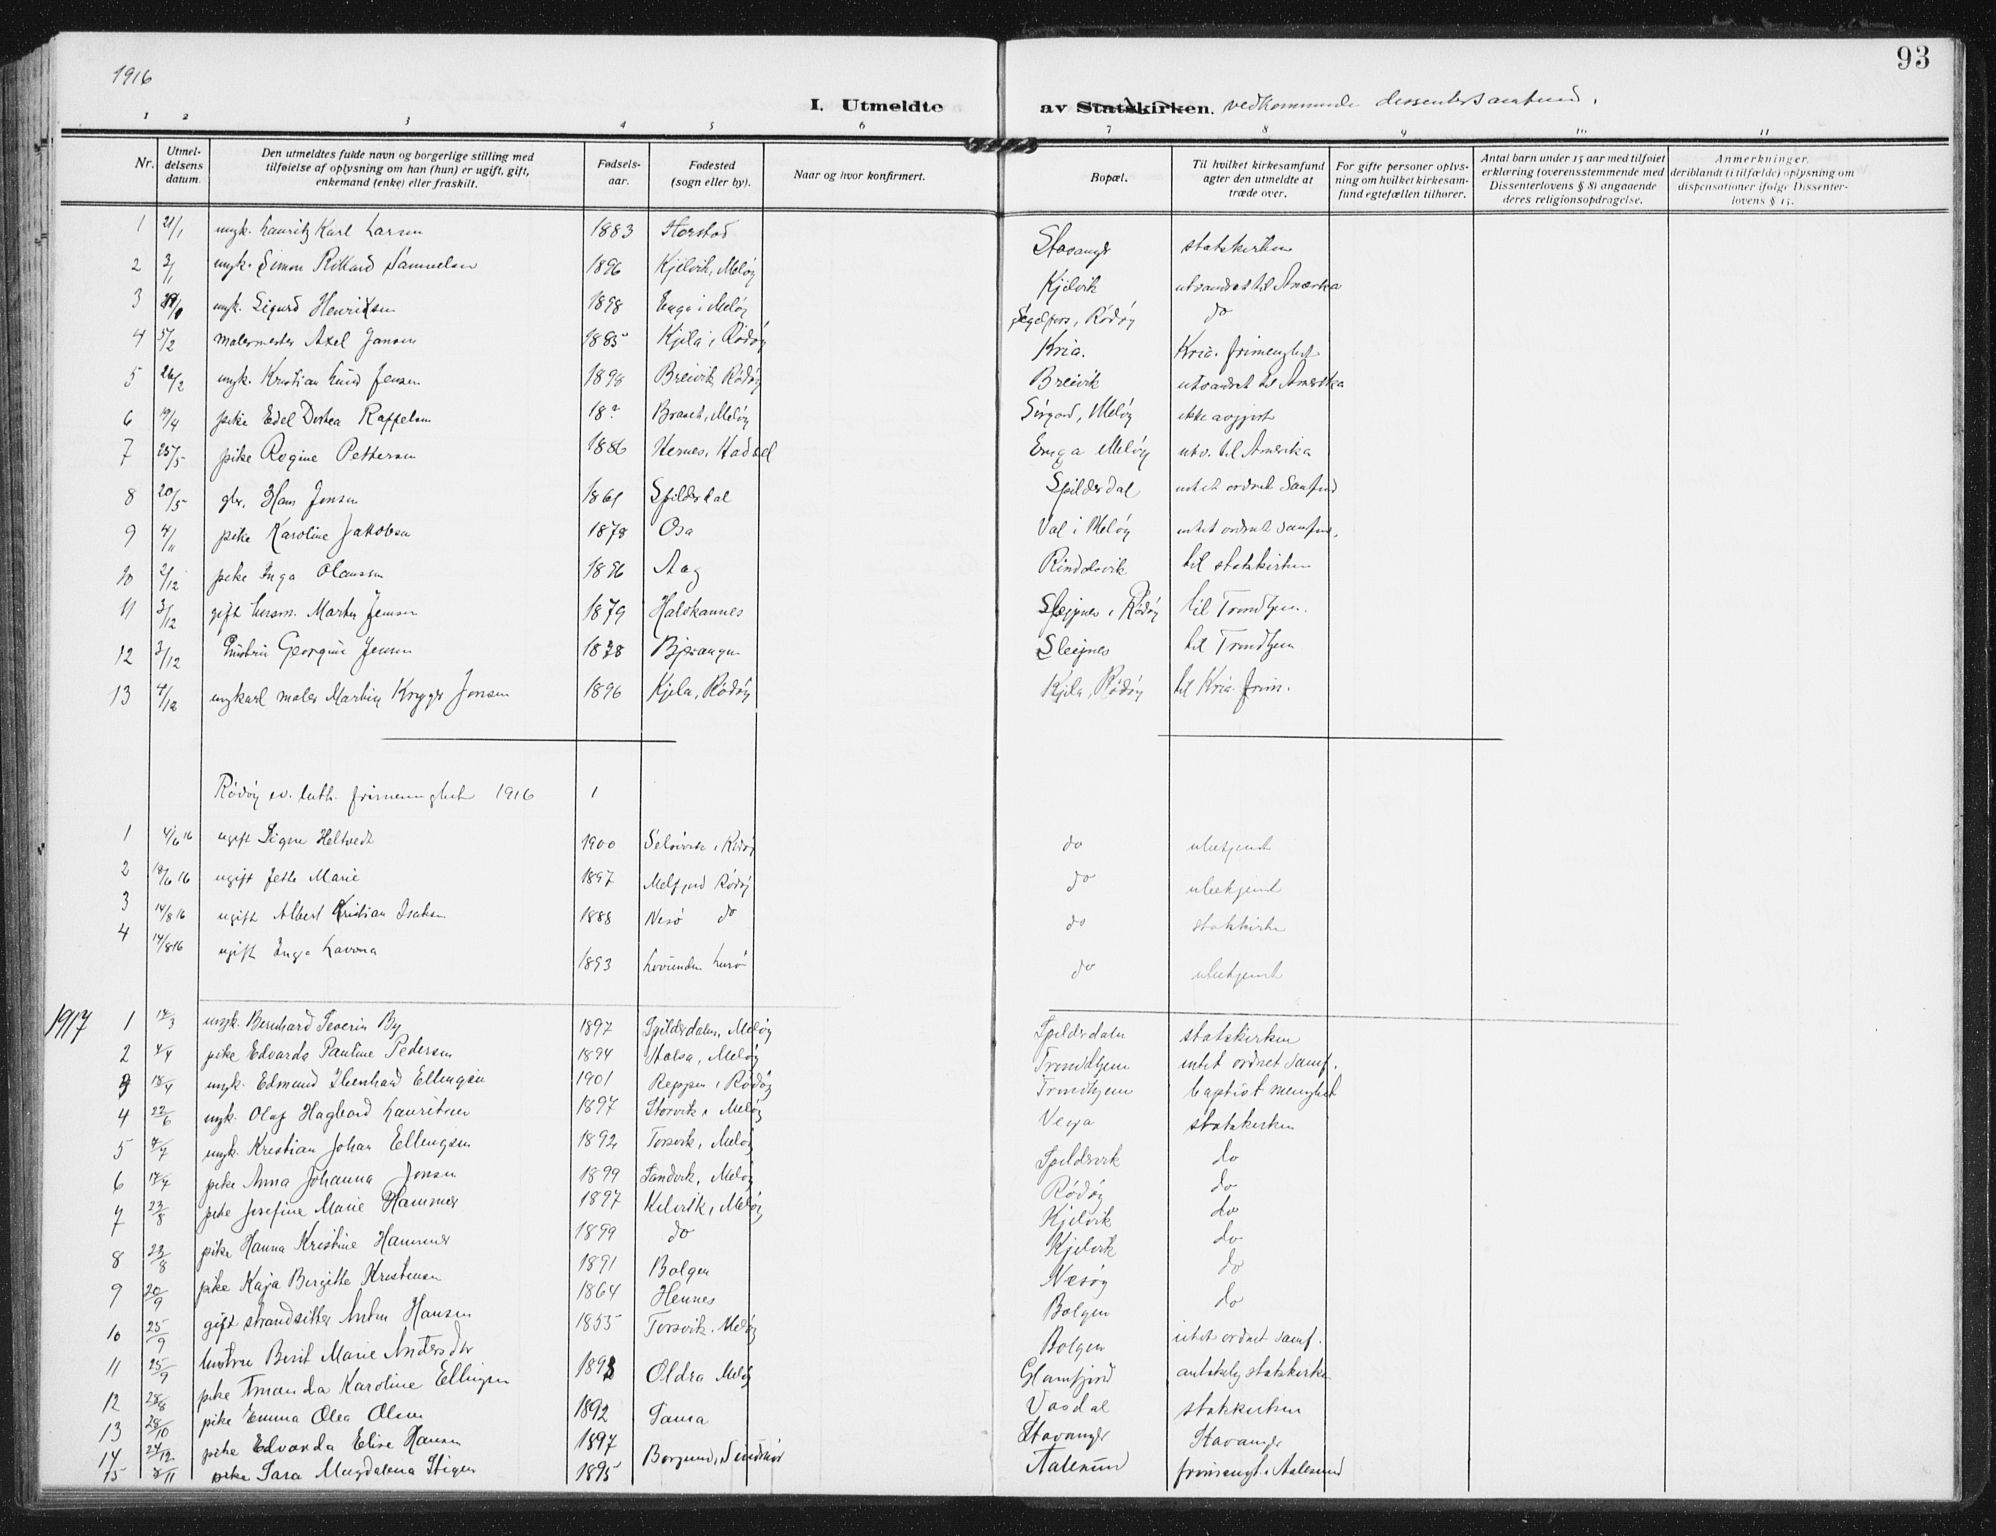 93
1916
I. Utmeldte av Statskirken. vedkommende dissentersamfund.
1 2 3 4 5 6 7 8 9 10 11
Nr. | Utmeldelsens datum. | Den utmeldtes fulde navn og borgerlige stilling med tilføielse af oplysning om han (hun) er ugift, gift, enkemand (enke) eller fraskilt. | Fødselsaar. | Fødested (sogn eller by). | Naar og hvor konfirmert. | Bopæl. | Til hvilket kirkesamfund agter den utmeldte at træde over. | For gifte personer oplysning om hvilket kirkesamfund egtefællen tilhører. | Antal barn under 15 aar med tilføiet erklæring (overensstemmende med Dissenterlovens § 8) angaaende deres religionsopdragelse. | Anmerkninger, deriblandt (i tilfælde) oplysning om dispensationer ifølge Dissenterlovens § 15.
1 21/1 ungk. Lauritz Karl Larsen 1883 Harstad Stavanger statskirken
2 3/1 ungk. Simon Rikhard Samuelsen 1896 Kjelvik, Meløy Kjelvik utvandret til Amerika
3 ungk. Sigurd Henriksen 1898 Enga i Meløy Rødøy do
4 5/2 malermester Axel Jensen 1885 Kjila i Rødøy Kria. Kria. frimenighet
5 26/2 ungk. Kristian Lund Jensen 1898 Breivik, Rødøy Breivik utvandret til Amerika
6 19/4 pike Edel Dortea Raffelsen 18? Braset, Meløy Sørgard, Meløy ikke avgjort
7 25/5 pike Regine Pettersen 1886 Hernes, Hadsel Enga Meløy utv. til Amerika
8 20/5 gbr. Hans Jensen 1861 Spilderdal Spilderdal intet ordnet samfund
9 4/11 pike Karoline Jakobsen 1878 Osa Val i Meløy intet ordnet samfund.
10 2/12 pike Inga Olaussen 1896 Aag Rinddalsvik til statskirken
11 3/12 gift husm. Martin Jensen 1879 Halskannes Sleipnes i Rødøy til Trondhjem.
12 3/12 hustru Georgine Jensen 1838 Bjerangen Sleipnes til Trondhjem
13 4/12 ungkarl maler Martin Krygger Jensen 1896 Kjila, Rødøy Kjila, Rødøy til Kria. frim.
Rødøy ev. luth. frimenighet 1916
1 4/6 16 ugift Signe Heltvedt 1900 Selsøvik i Rødøy do ubekjendt
2 18/6 16 ugift Jette Marie 1897 Melfjord Rødøy do ubekjendt
3 14/8 16 ugift Albert Kristian Isaksen 1888 Nesø do do statskirke
4 14/8 16 ugift Inga Lavona 1893 Lovunden Lurø do ubekjent
1917
1 14/3 ungk. Bernhard Severin By 1897 Spilderdalen, Meløy Spilderdalen statskirken
2 4/4 pike Edvarda Pauline Pedersen 1894 Halsa, Meløy Trondhjem intet ordnet samf.
3 18/4 ungk. Edmund Ibenhard Ellingsen 1901 Reppen i Rødøy Trondhjem baptist menighet
4 22/6 ungk. Olaf Hagbard Lauritsen 1897 Storvik i Meløy Vega statskirken
5 4/7 ungk. Kristian Johan Ellingsen 1892 Torsvik, Meløy Spildervik do
6 14/7 pike Anna Johanna Jensen 1899 Sandvik, Meløy Rødøy do
7 23/8 pike Josefine Marie Hammer 1897 Kelvik, Meløy Kjelvik do
8 23/8 pike Hanna Kristine Hammer 1899 do Kjelvik do
9 20/9 pike Kaja Birgitte Kristensen 1891 Bolgen Næsøy do
10 25/9 gift strandsitter Anton Hansen 1864 Hennes Bolgen do
11 25/9 hustru Berit Marie Andersdtr 1855 Torsvik, Meløy Bolgen intet ordnet samf.
12 28/8 pike Amanda Karoline Ellingsen 1898 Oldra Meløy Glomfjord antakelig statskirken
13 28/10 pike Emma Olea Olsen 1892 Saura Vasdal statskirken
14 24/12 pike Edvarda Elise Hansen 1897 Stavanger Stavanger
15 8/11 pike Sara Magdalena Stigen 1895 Borgund, Søndmør Aalesund frimenigh. i Aalesund